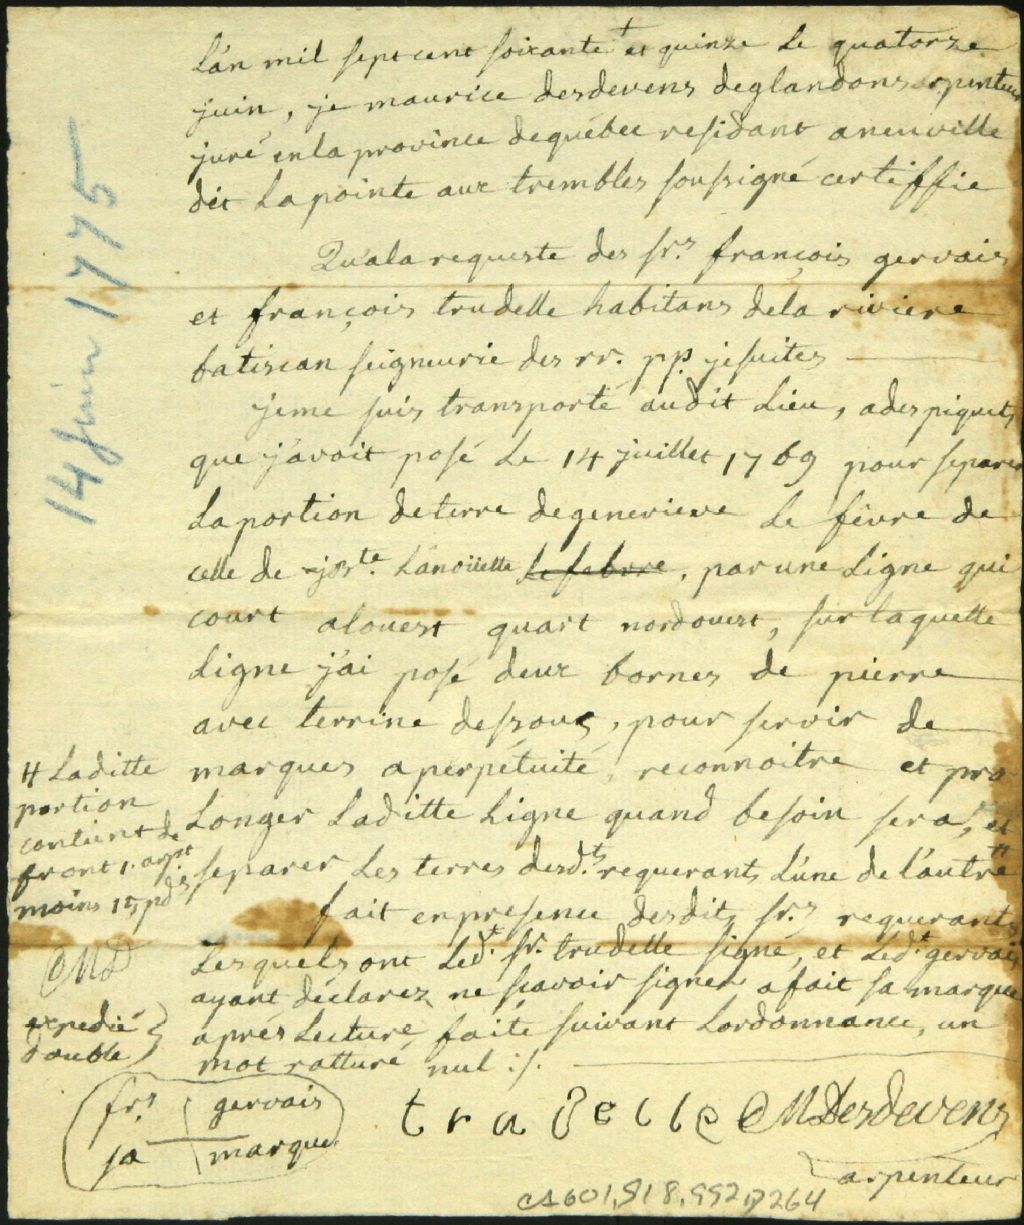 L'an mil sept cent soixante + et quinze le quatorze
juin, je maurice desdevens deglandons arpenteur
juré en la province dequébec residant a neuville
dit La pointe aux trembles soussigné certiffie
Qu'ala requeste des srs. françois gervais
et françois trudelle habitans dela riviere
batiscan seigneurie des rr. pp. jesuites
jeme suis transporté audit Lieu, a des piquets
que j'avoit posé le 14 juillet 1769 pour separer
La portion de terre degenevieve Le fêvre de
celle de jos.te. Lanoüette Lefebvre, par une Ligne qui
court alouest quart nordouest, sur laquelle
Ligne j'ai posé deux bornes de pierre
avec terrine dessous, pour servir de
marques a perpétuité, reconnoitre et pro
Longer Laditte Ligne quand besoin sera, et
separer Les terres desd.ts requerants L'une de l'autre #
fait en presence desdits srs. requerants
Lesquels ont Led.t sr. trudelle signé, et Led.t gervais
ayant déclarez ne sçavoir signer a fait sa marque
après Lecture faite suivant Lordonnance, un
mot ratturé nul :/.
# Laditte
portion
contient de
front 1. arpt
moins 15 pds
MD
expedié
double
frs gervais
sa marque
trudelle MDesdevens
arpenteur
14 juin 1775
CA601,S18,SS2,P264